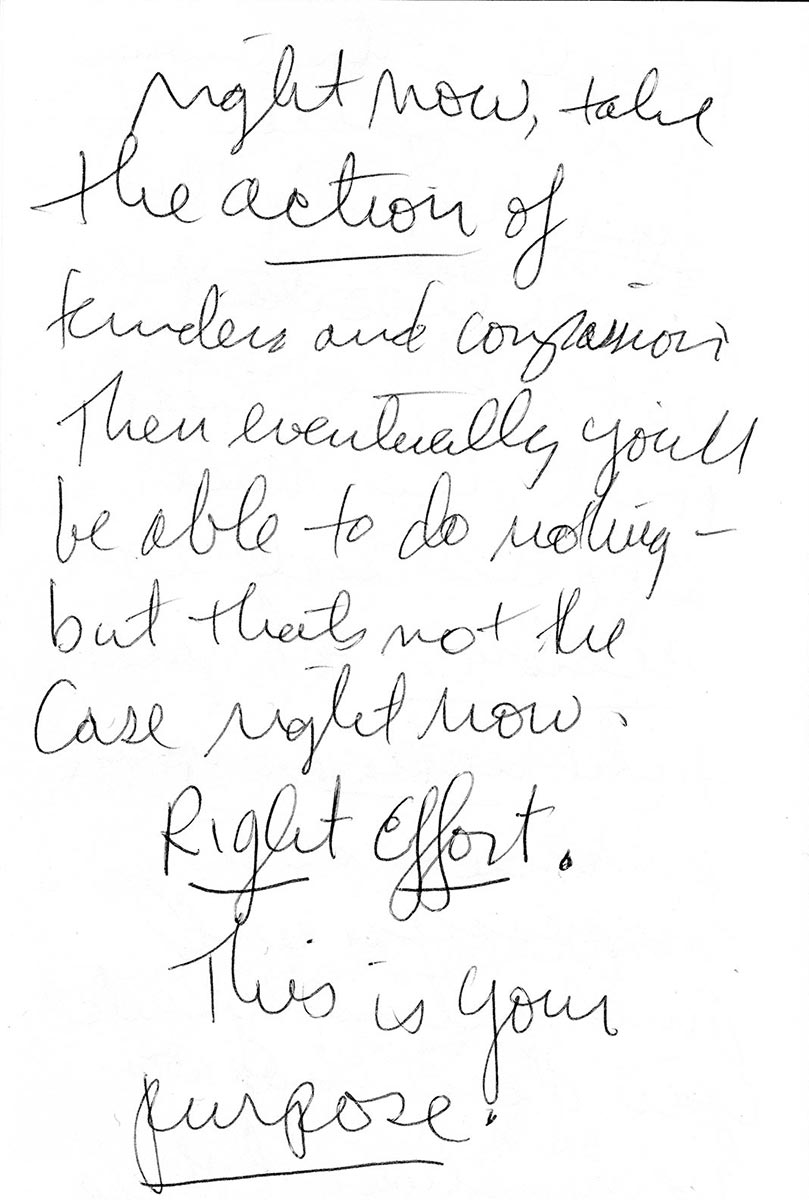 right now, take
the action of
and compassion
Then eventually you'll
be able to do nothing –
but that's not the
Case right now.
Right Effort.
This is your
purpose.